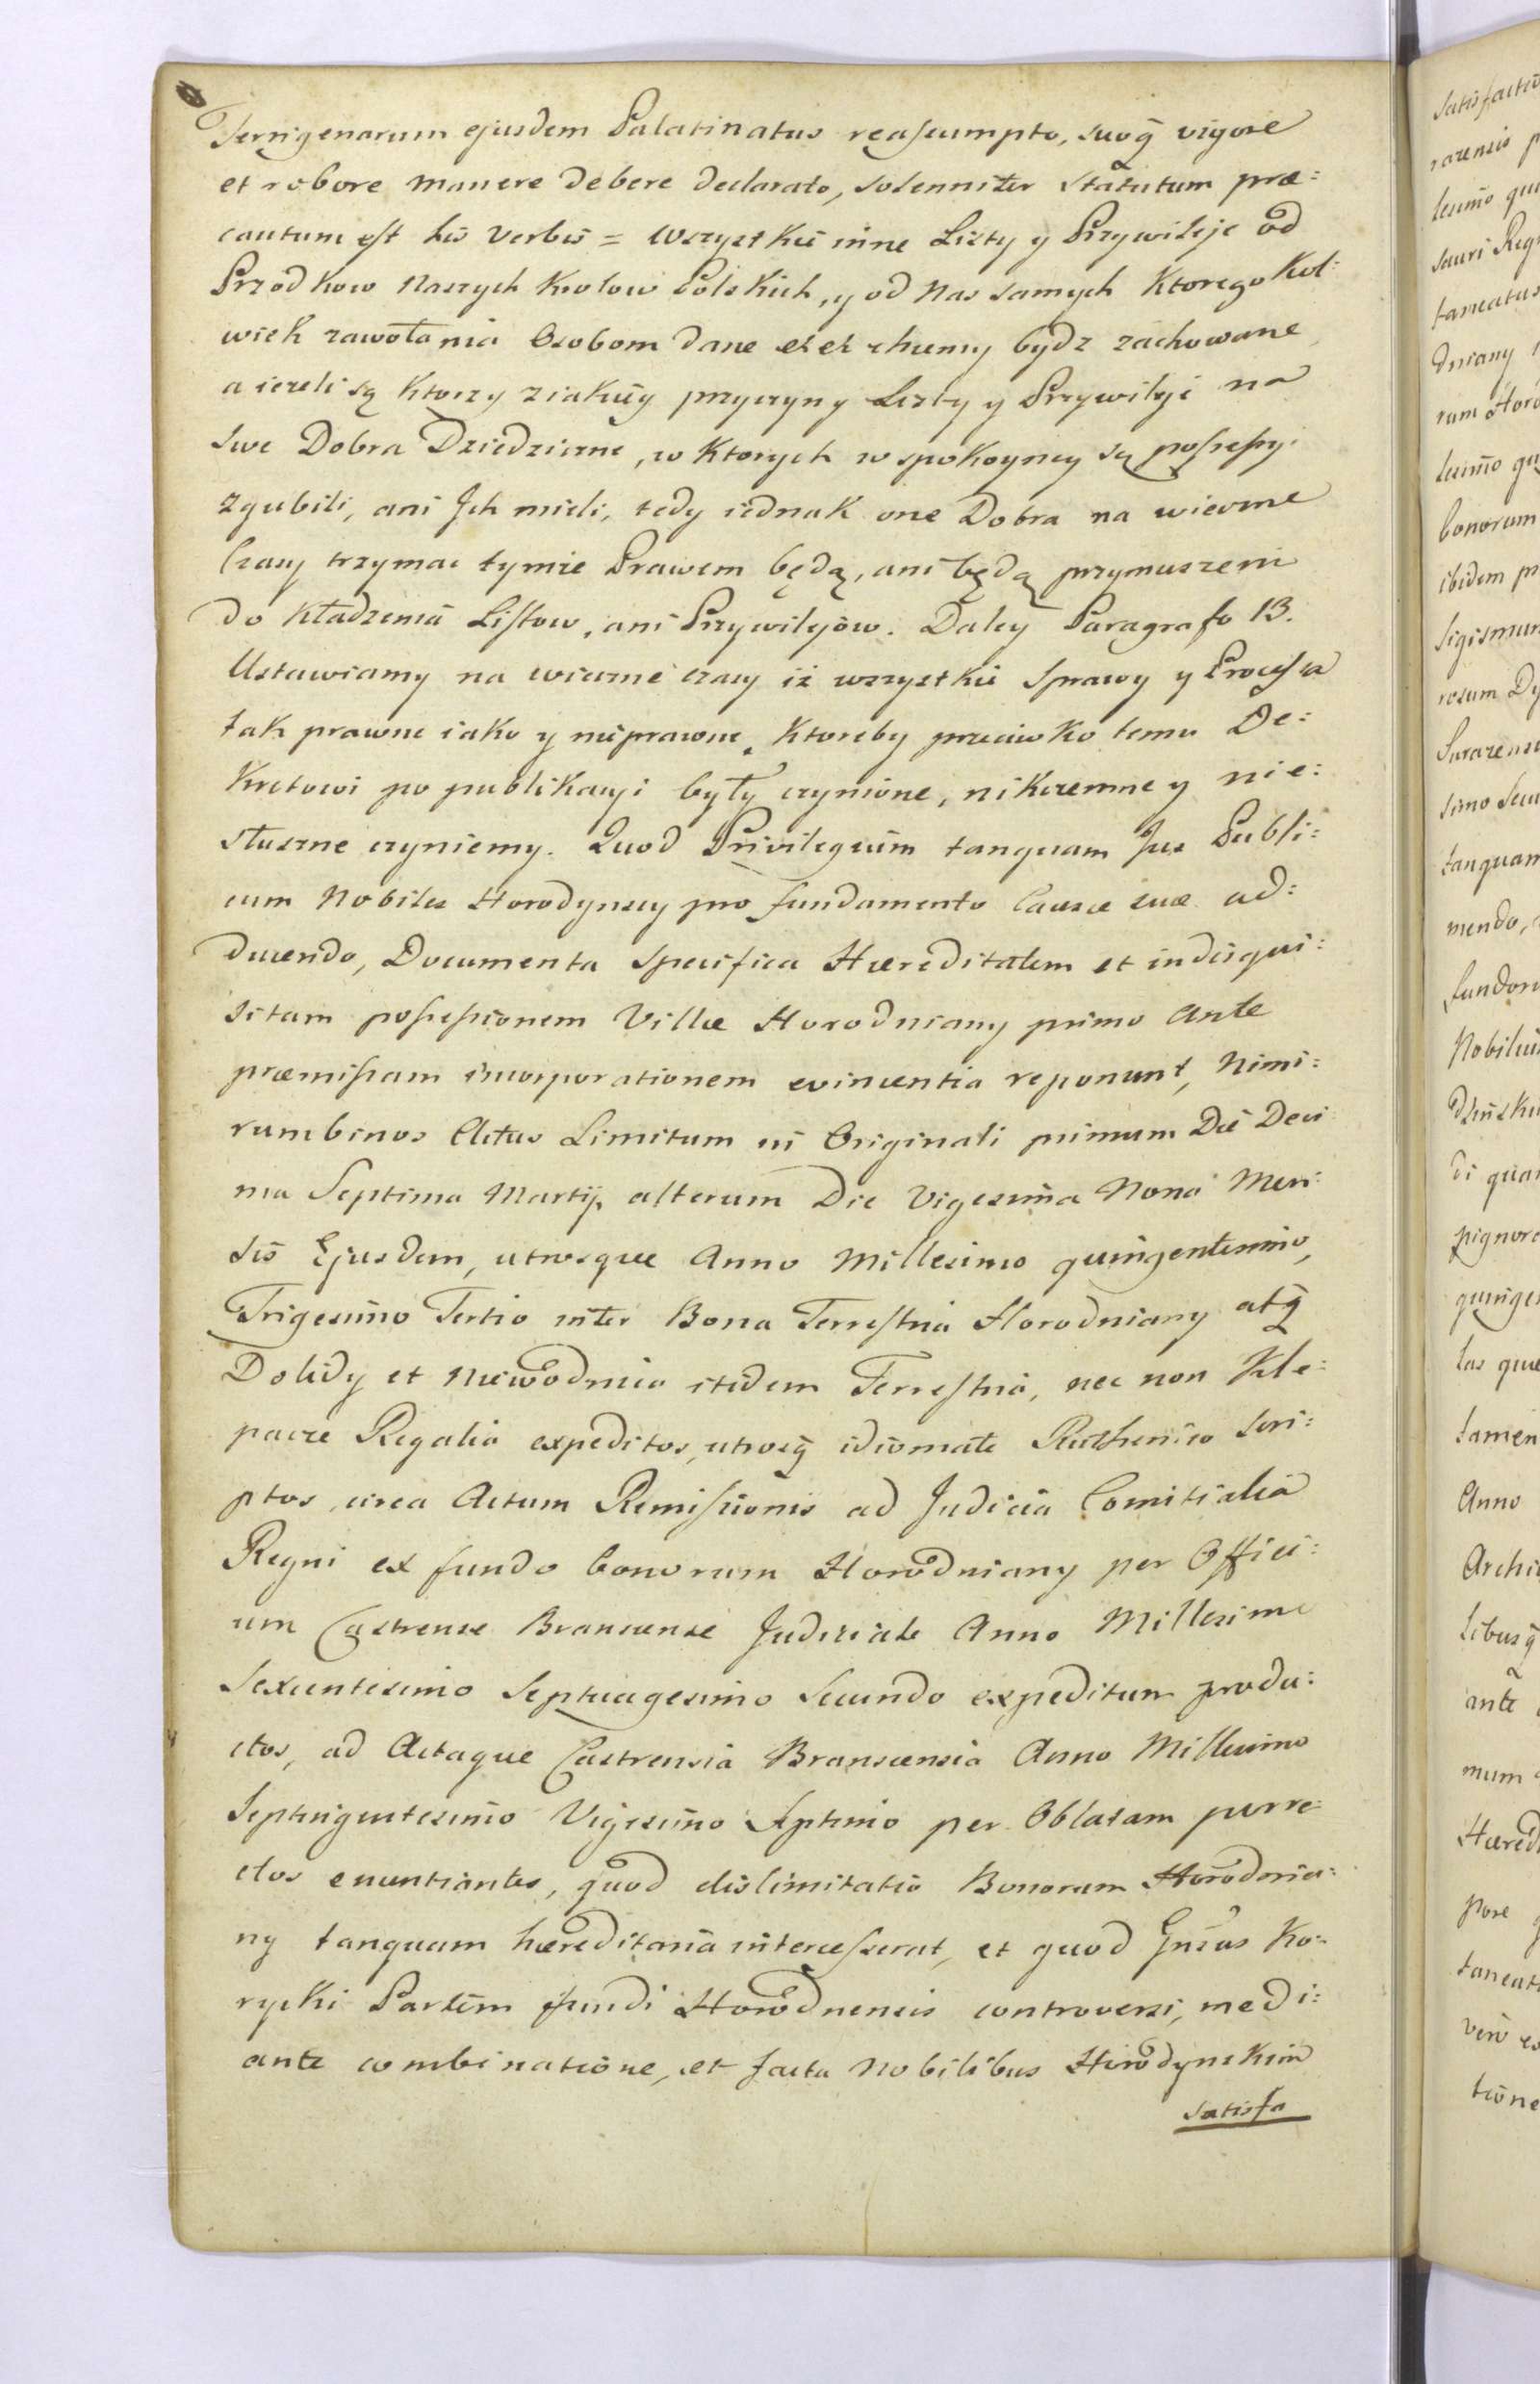 Terrigenarum ejusdem Palatinatus reaſsumpto, suoq̃ vigore
et robore manere debere declarato, solenniter Statutum præ:
cautum eſt his verbis = Wszystkie inne Listy y Przywileje od
Przodkow Naszych Krolow Polskich, y od Nas samych Ktorego Kol:
wiek zawołania Osobom dane etet chcemy bydz zachowane
a iezeli są Ktorzy ziakiey przyczyny Listy y Przywileje na
Swe Dobra Dziedziczne, w Ktorych w spokoyney są poſseſsyi
zgubili, ani Jch mieli, tedy iednak one Dobra na wieczne
Czasy trzymac tymże Prawem będą, ani będą przymuszeni
do Kładzenia Liſtow, ani Przywilejow. Daley Paragrafo 13.
Ustawiamy na wieczne czasy iż wszystkie Sprawy y Proceſsa
tak prawne iako y nieprawne, Ktoreby przeciwko temu De:
Kretowi po publikacyi były czynione, nikczemne y nie:
słuszne czyniemy. Quod Privilegium tanquam Jus Publi:
cum Nobiles Horodynscy pro fundamento Causæ suæ ad:
ducendo, Documenta specifica Hæreditatem et indisqui:
sitam poſseſsionem Villæ Horodniany primo Ante
præmiſsam incorporationem evincentia reponunt, Nimi:
rum binos Actus Limitum in Originali primum Die Deci
ma Septima Martij, alterum Die Vigesima Nona Men:
sis Ejusdem, utrosque Anno Millesimo quingentesimo,
Trigesimo Tertio inter Bona Terreſtria Horodniany atq̃
Dolidy et Niewodnica itidem Terreſtria, nec non Kle:
pacze Regalia expeditos, utrosq̃ idiomate Ruthenico scri:
ptos, circa Actum Remiſsionis ad Judicia Comitialia
Regni ex fundo bonorum Horodniany per Offici:
um Castrense Branscense Judiciale Anno Millesimo
Sexcentesimo Septuagesimo Secundo expeditum produ:
ctos, ad Actaque Castrensia Branscensia Anno Millesimo
Septingentesimo Vigesimo Septimo per Oblatam porre
ctos enuntiantes, quod dislimitatio Bonorum Horodnia:
ny tanquam hæreditaria interceſserat, et quod Gnſus Ko:
rycki Partem fundi Horodnensis controversi, medi:
ante combinatione, et facta Nobilibus Horodynskim
satisfa